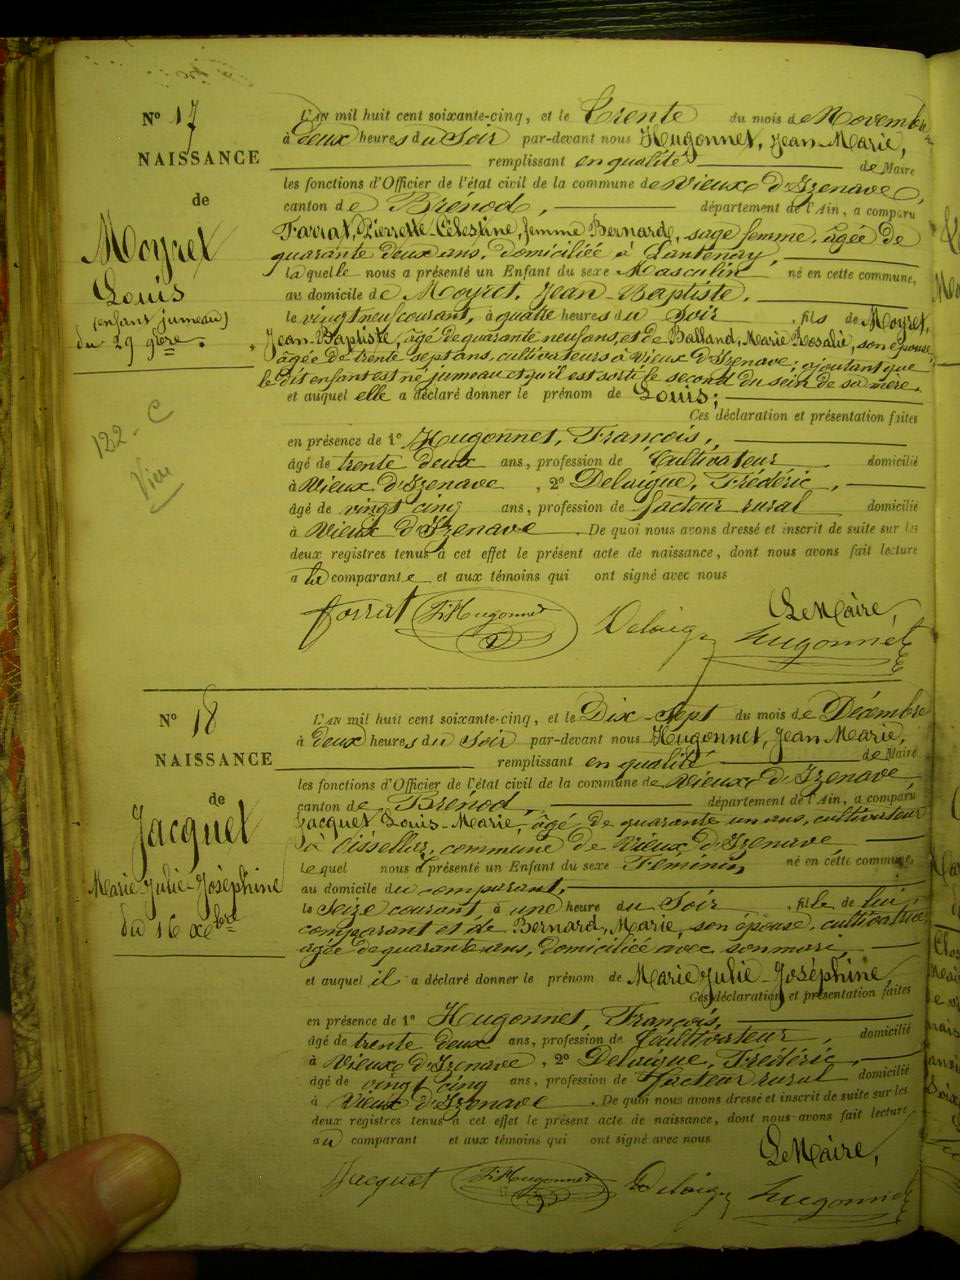 N° 17
NAISSANCE
de
Moyret
Louis
(enfant jumeau)
du 29 9bre.
122 - C
Vieu
L'AN mil huit cent soixante-cinq, et le Trente du mois de Novembre
à deux heures du Soir par-devant nous Hugonnet, Jean-Marie,
remplissant en qualité de Maire
les fonctions d'Officier de l'état civil de la commune de Vieux d'Izenave,
canton de Brénod, département de l'Ain, a comparu
Farrat, Pierrette-Célestine, femme Bernard, sage femme, âgée de
quarante deux ans, domiciliée à Lantenay,
laquelle nous a présenté un Enfant du sexe Masculin né en cette commune,
au domicile de Moyret, Jean-Baptiste,
le vingt neuf courant, à quatre heures du Soir, fils de Moyret,
Jean-Baptiste, âgé de quarante neuf ans, et de Balland, Marie Rosalie, son épouse
âgée de trente sept ans, cultivateurs à Vieux d'Izenave; ajoutant que
le dit enfant est né jumeau et qu'il est sorti le second du sein de sa mère,
et auquel elle a déclaré donner le prénom de Louis;
Ces déclaration et présentation faites
en présence de 1° Hugonnet, François,
âgé de trente deux ans, profession de Cultivateur, domicilié
à Vieux d'Izenave, 2° Delaigue, Frédéric,
âgé de vingt cinq ans, profession de facteur rural domicilié
à Vieux d'Izenave. De quoi nous avons dressé et inscrit de suite sur les
deux registres tenus à cet effet le présent acte de naissance, dont nous avons fait lecture
a la comparante et aux témoins qui ont signé avec nous
Le Maire,
forrat Fs Hugonnet Delaigue Hugonnet
N° 18
NAISSANCE
de
Jacquet
Marie-Julie-Joséphine
du 16 Xbre
L'AN mil huit cent soixante-cinq, et le Dix-Sept du mois de Décembre
à deux heures du Soir par-devant nous Hugonnet, Jean Marie,
remplissant en qualité de Maire
les fonctions d'Officier de l'état civil de la commune de Vieux d'Izenave
canton de Brénod, département de l'Ain, a comparu
Jacquet Louis-Marie, âgé de quarante un ans, cultivateur
à Oisellaz, commune de Vieux d'Izenave
Lequel nous a présenté un Enfant du sexe Féminin né en cette commune,
au domicile du comparant,
le Seize courant à une heure du Soir, fille de lui
comparant et de Bernard, Marie, son épouse, cultivatrice,
âgée de quarante ans, domiciliée avec son mari
et auquel il a déclaré donner le prénom de Marie Julie-Joséphine,
Ces déclaration et présentation faites
en présence de 1° Hugonnet, François,
âgé de trente deux ans, profession de Cultivateur, domicilié
à Vieux d'Izenave, 2° Delaigue, Frédéric,
âgé de vingt cinq ans, profession de facteur rural domicilié
à Vieux d'Izenave. De quoi nous avons dressé et inscrit de suite sur les
deux registres tenus à cet effet le présent acte de naissance, dont nous avons fait lecture
au comparant et aux témoins qui ont signé avec nous
Le Maire,
Jacquet Fs Hugonnet Delaigue Hugonnet